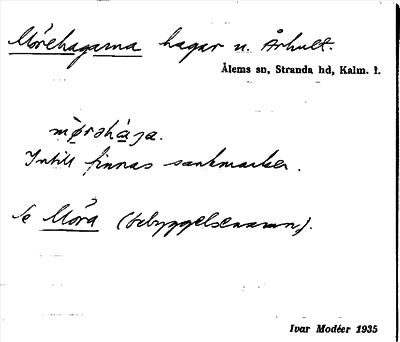 Mörehagarna hagar u. Århult.
Ålems sn, Stranda hd, Kalm. l.
Intill finnas sankmarker.
Se Möra (bebyggelsenamn).
Ivar Modéer 1935